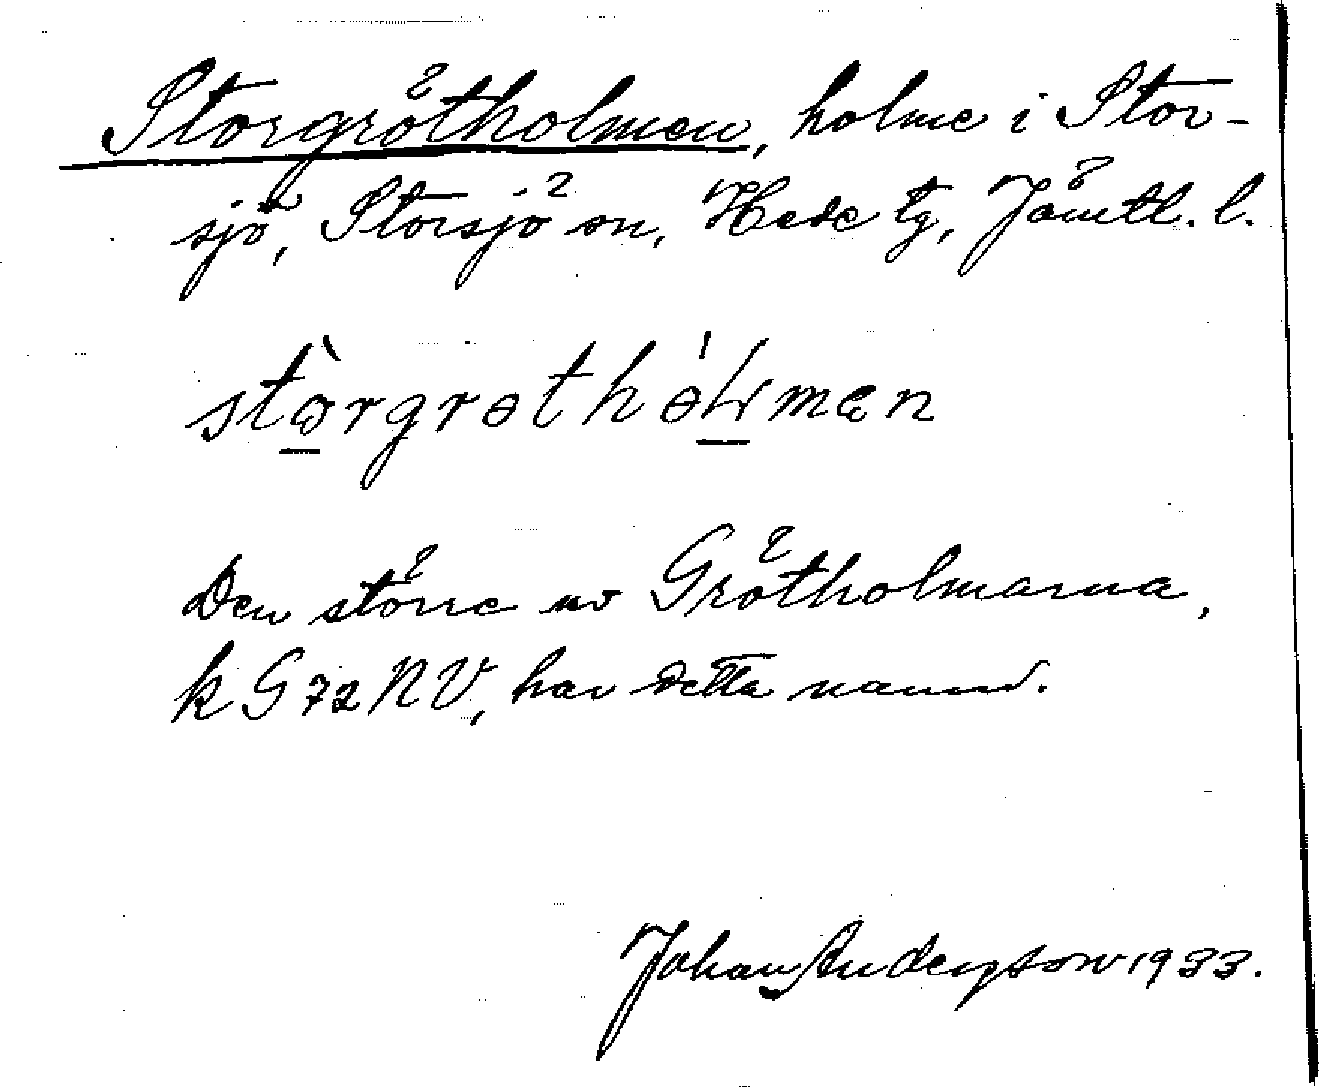 Storgrötholmen, holme i Stor-
sjö, Storsjö sn, Hede tg, Jämtl. l.
stòrgrɵthɵ́lmɛn
Den större av Grötholmarna,
k G 72 NV, har detta namn.
Johan Anderson 1933.